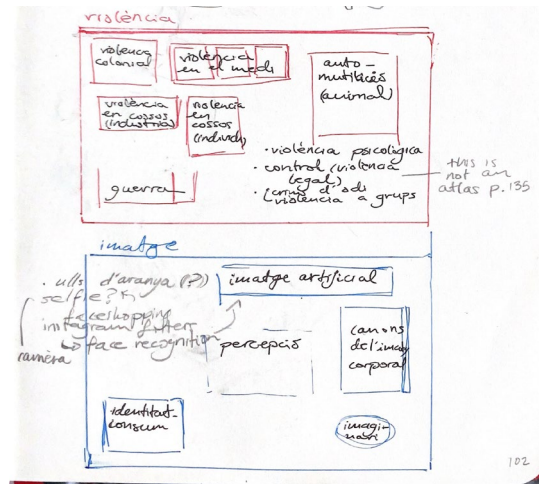 violència
violència
colonial
violència
en el medi
auto-
mutilació
(animal)
violència
en cossos
(indústria)
violència
en
cossos
(individu)
· violència psicològica
· control (violència
legal)
· (crims d'odi
violència a grups
this is
not an
atlas p. 135
guerra
imatge
· ulls d'aranya (?)
selfie?
faceshopping
instagram filters
↳ face recognition
càmera
imatge artificial
percepció
canons
de l'imatge
corporal
identitat-
consum
imagi-
nari
102